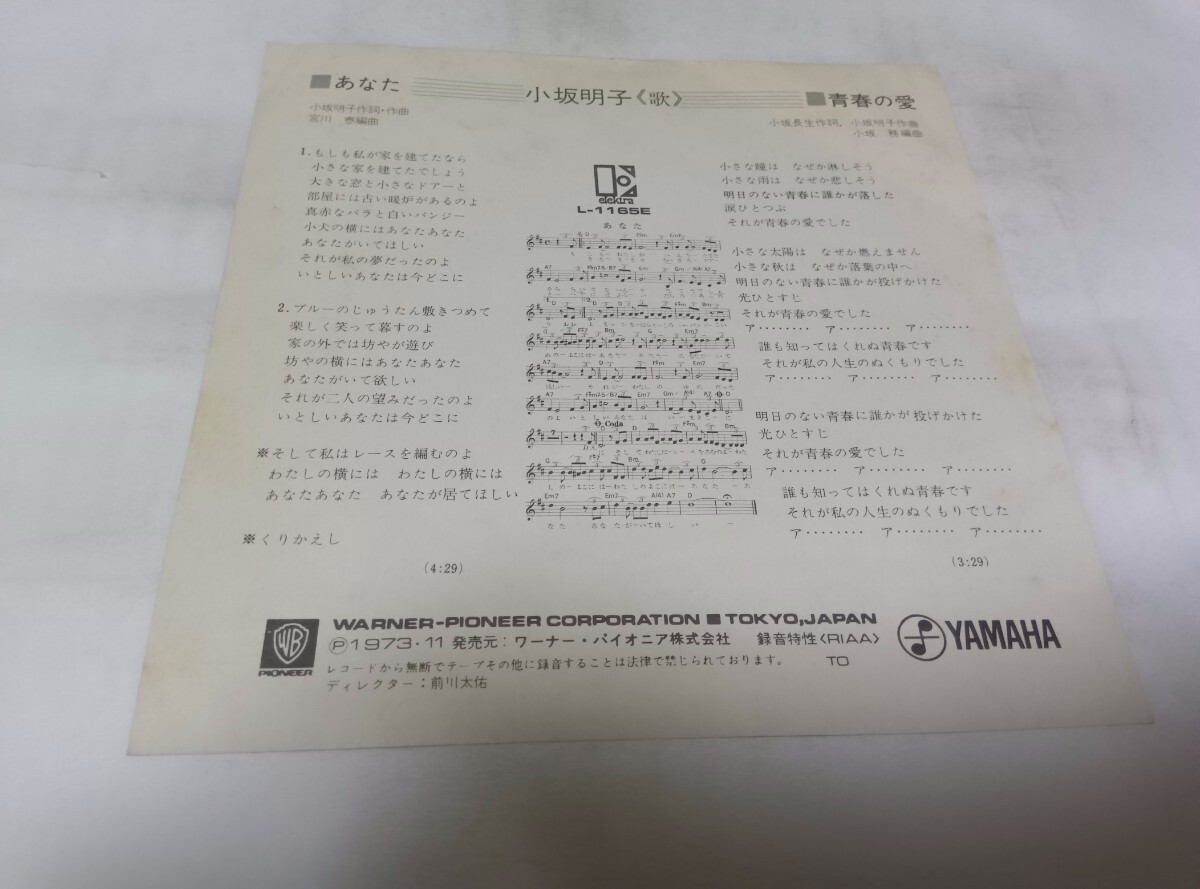 ■あなた
小坂明子作詞・作曲
宮川　泰編曲
小坂明子《歌》
■青春の愛
小坂長生作詞, 小坂明子作曲
小坂　務編曲
1.もしも私が家を建てたなら
小さな家を建てたでしょう
大きな窓と小さなドアーと
部屋には古い暖炉があるのよ
真赤なバラと白いパンジー
小犬の横にはあなたあなた
あなたがいてほしい
それが私の夢だったのよ
いとしいあなたは今どこに
2.ブルーのじゅうたん敷きつめて
楽しく笑って暮すのよ
家の外では坊やが遊び
坊やの横にはあなたあなた
あなたがいて欲しい
それが二人の望みだったのよ
いとしいあなたは今どこに
※そして私はレースを編むのよ
わたしの横には　わたしの横には
あなたあなた　あなたが居てほしい
※くりかえし
(4:29)
elektra
L-1165E
あなた
Coda
小さな瞳は　なぜか淋しそう
小さな雨は　なぜか悲しそう
明日のない青春に誰かが落した
涙ひとつぶ
それが青春の愛でした
小さな太陽は　なぜか燃えません
小さな秋は　なぜか落葉の中へ
明日のない青春に誰かが投げかけた
光ひとすじ
それが青春の愛でした
ア‥‥‥‥　ア‥‥‥‥　ア‥‥‥‥
誰も知ってはくれぬ青春です
それが私の人生のぬくもりでした
ア‥‥‥‥　ア‥‥‥‥　ア‥‥‥‥
明日のない青春に誰かが投げかけた
光ひとすじ
それが青春の愛でした
ア‥‥‥‥　ア‥‥‥‥　ア‥‥‥‥
誰も知ってはくれぬ青春です
それが私の人生のぬくもりでした
ア‥‥‥‥　ア‥‥‥‥　ア‥‥‥‥
(3:29)
WB
PIONEER
WARNER-PIONEER CORPORATION ■ TOKYO,JAPAN
Ⓟ1973・11 発売元：ワーナー・パイオニア株式会社　録音特性〈RIAA〉
レコードから無断でテープその他に録音することは法律で禁じられております。　TO
ディレクター：前川太佑
YAMAHA